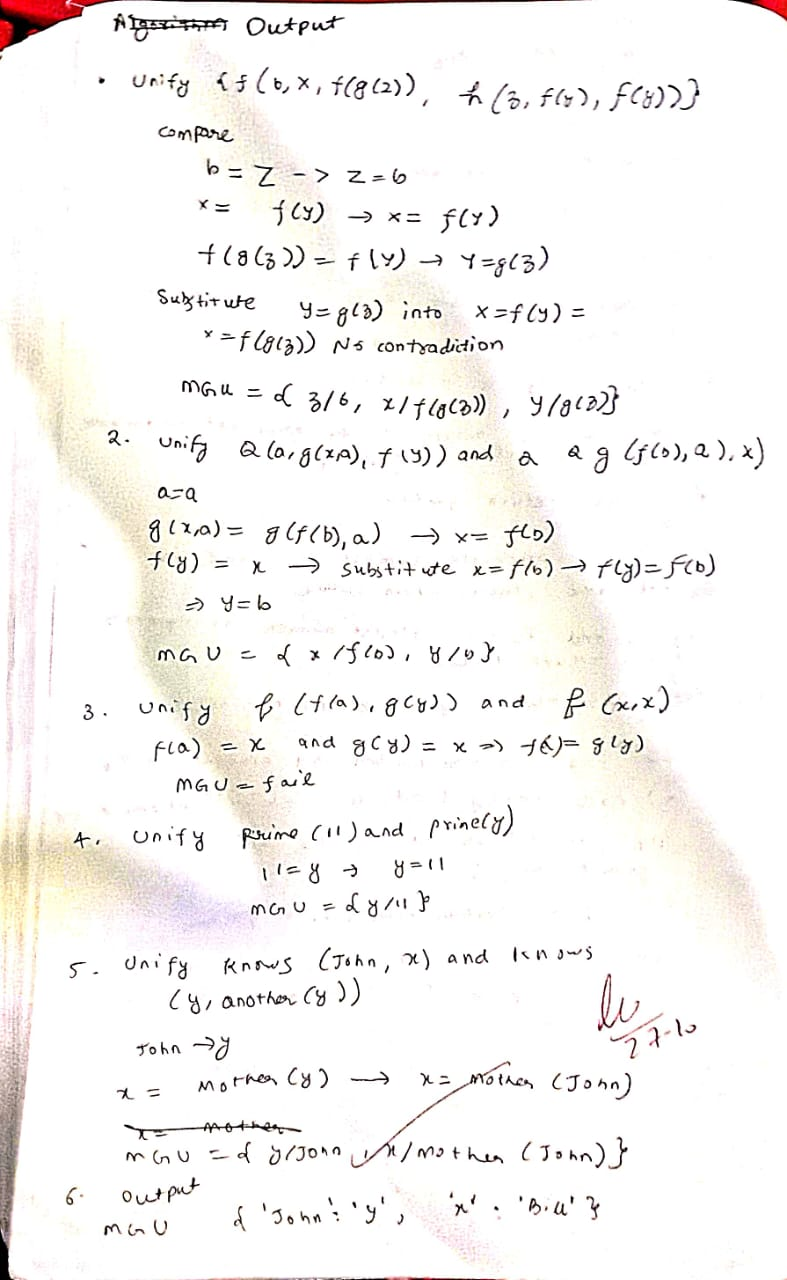 Output
• Unify {f(b, x, f(g(z)), h(z, f(y), f(y))}
compare
b = Z -> Z = b
x = f(y) → x = f(y)
f(g(z)) = f(y) → Y = g(z)
Substitute y = g(z) into x = f(y) =
x = f(g(z)) No contradiction
MGU = { z/b, x/f(g(z)), y/g(z)}
2. Unify Q(a, g(x,a), f(y)) and a Q g (f(b), a), x)
a = a
g(x,a) = g(f(b), a) → x = f(b)
f(y) = x → substitute x = f(b) → f(y) = f(b)
⇒ y = b
MGU = { x/f(b), y/b}
3. Unify f (f(a), g(y)) and f (x,x)
f(a) = x and g(y) = x ⇒ f(a) = g(y)
MGU = fail
4. Unify prime (11) and prine(y)
11 = y → y = 11
MGU = {y/11}
5. Unify Knows (John, x) and knows
(y, another (y))
John → y
x = Mother (y) → x = Mother (John)
27-10
MGU = { y/John, x/mother (John)}
6. Output
MGU { 'John': 'y', 'x': 'Bill' }